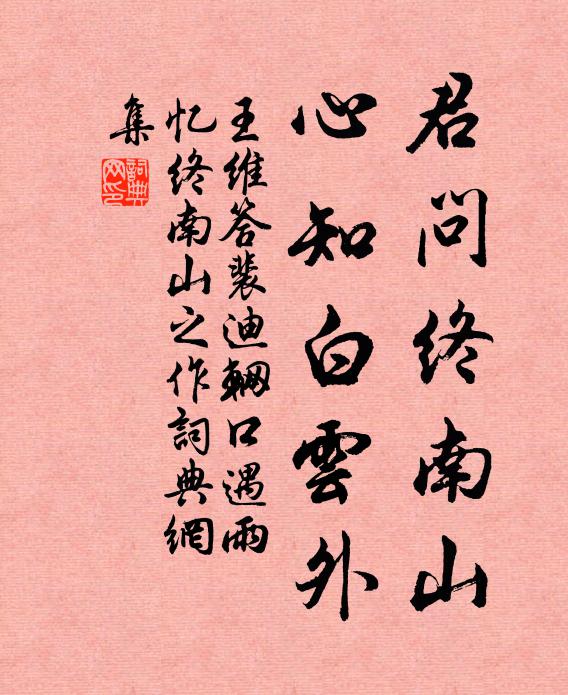 君问终南山
心知白雲外
王维答裴迪輞口遇雨
忆终南山之作詞典網
集
詞典
网印